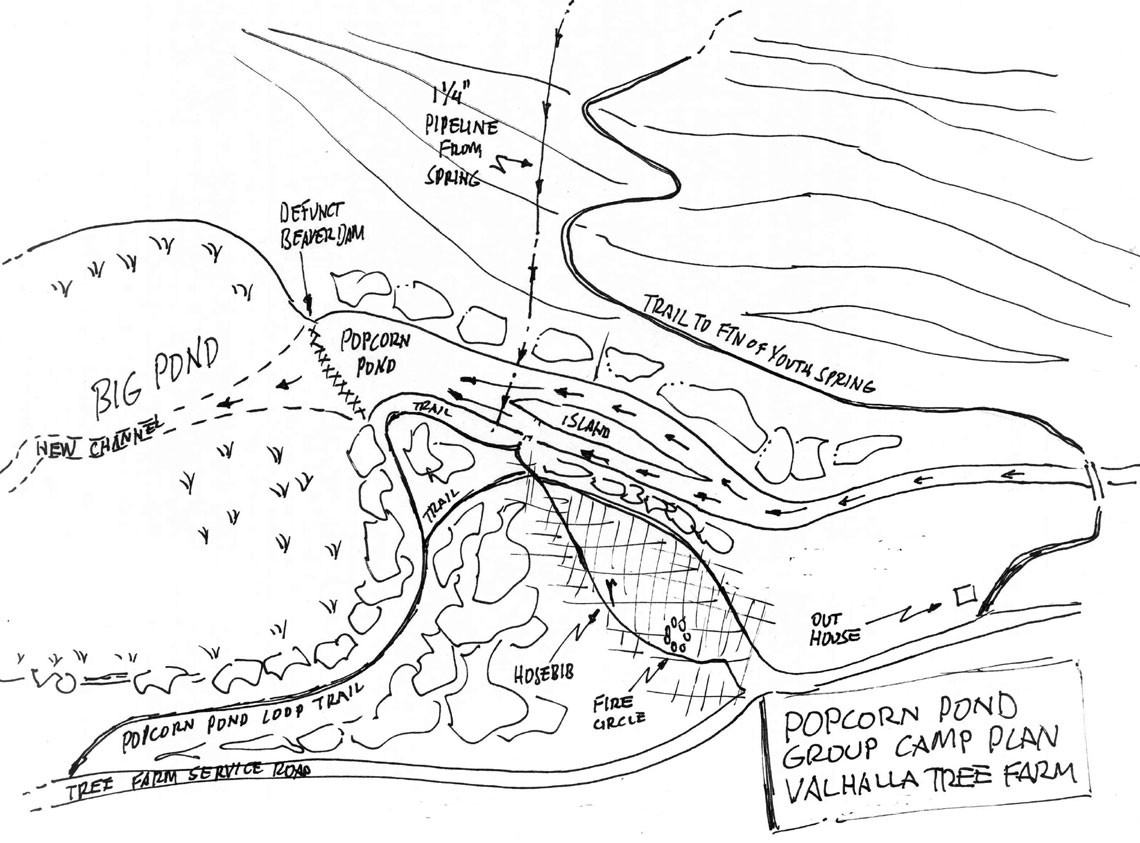 1 1/4"
PIPELINE
FROM
SPRING
DEFUNCT
BEAVER DAM
TRAIL TO FTN OF YOUTH SPRING
POPCORN
POND
BIG POND
NEW CHANNEL
TRAIL
ISLAND
TRAIL
OUT
HOUSE
HOSEBIB
FIRE
CIRCLE
POPCORN POND LOOP TRAIL
TREE FARM SERVICE ROAD
POPCORN POND
GROUP CAMP PLAN
VALHALLA TREE FARM